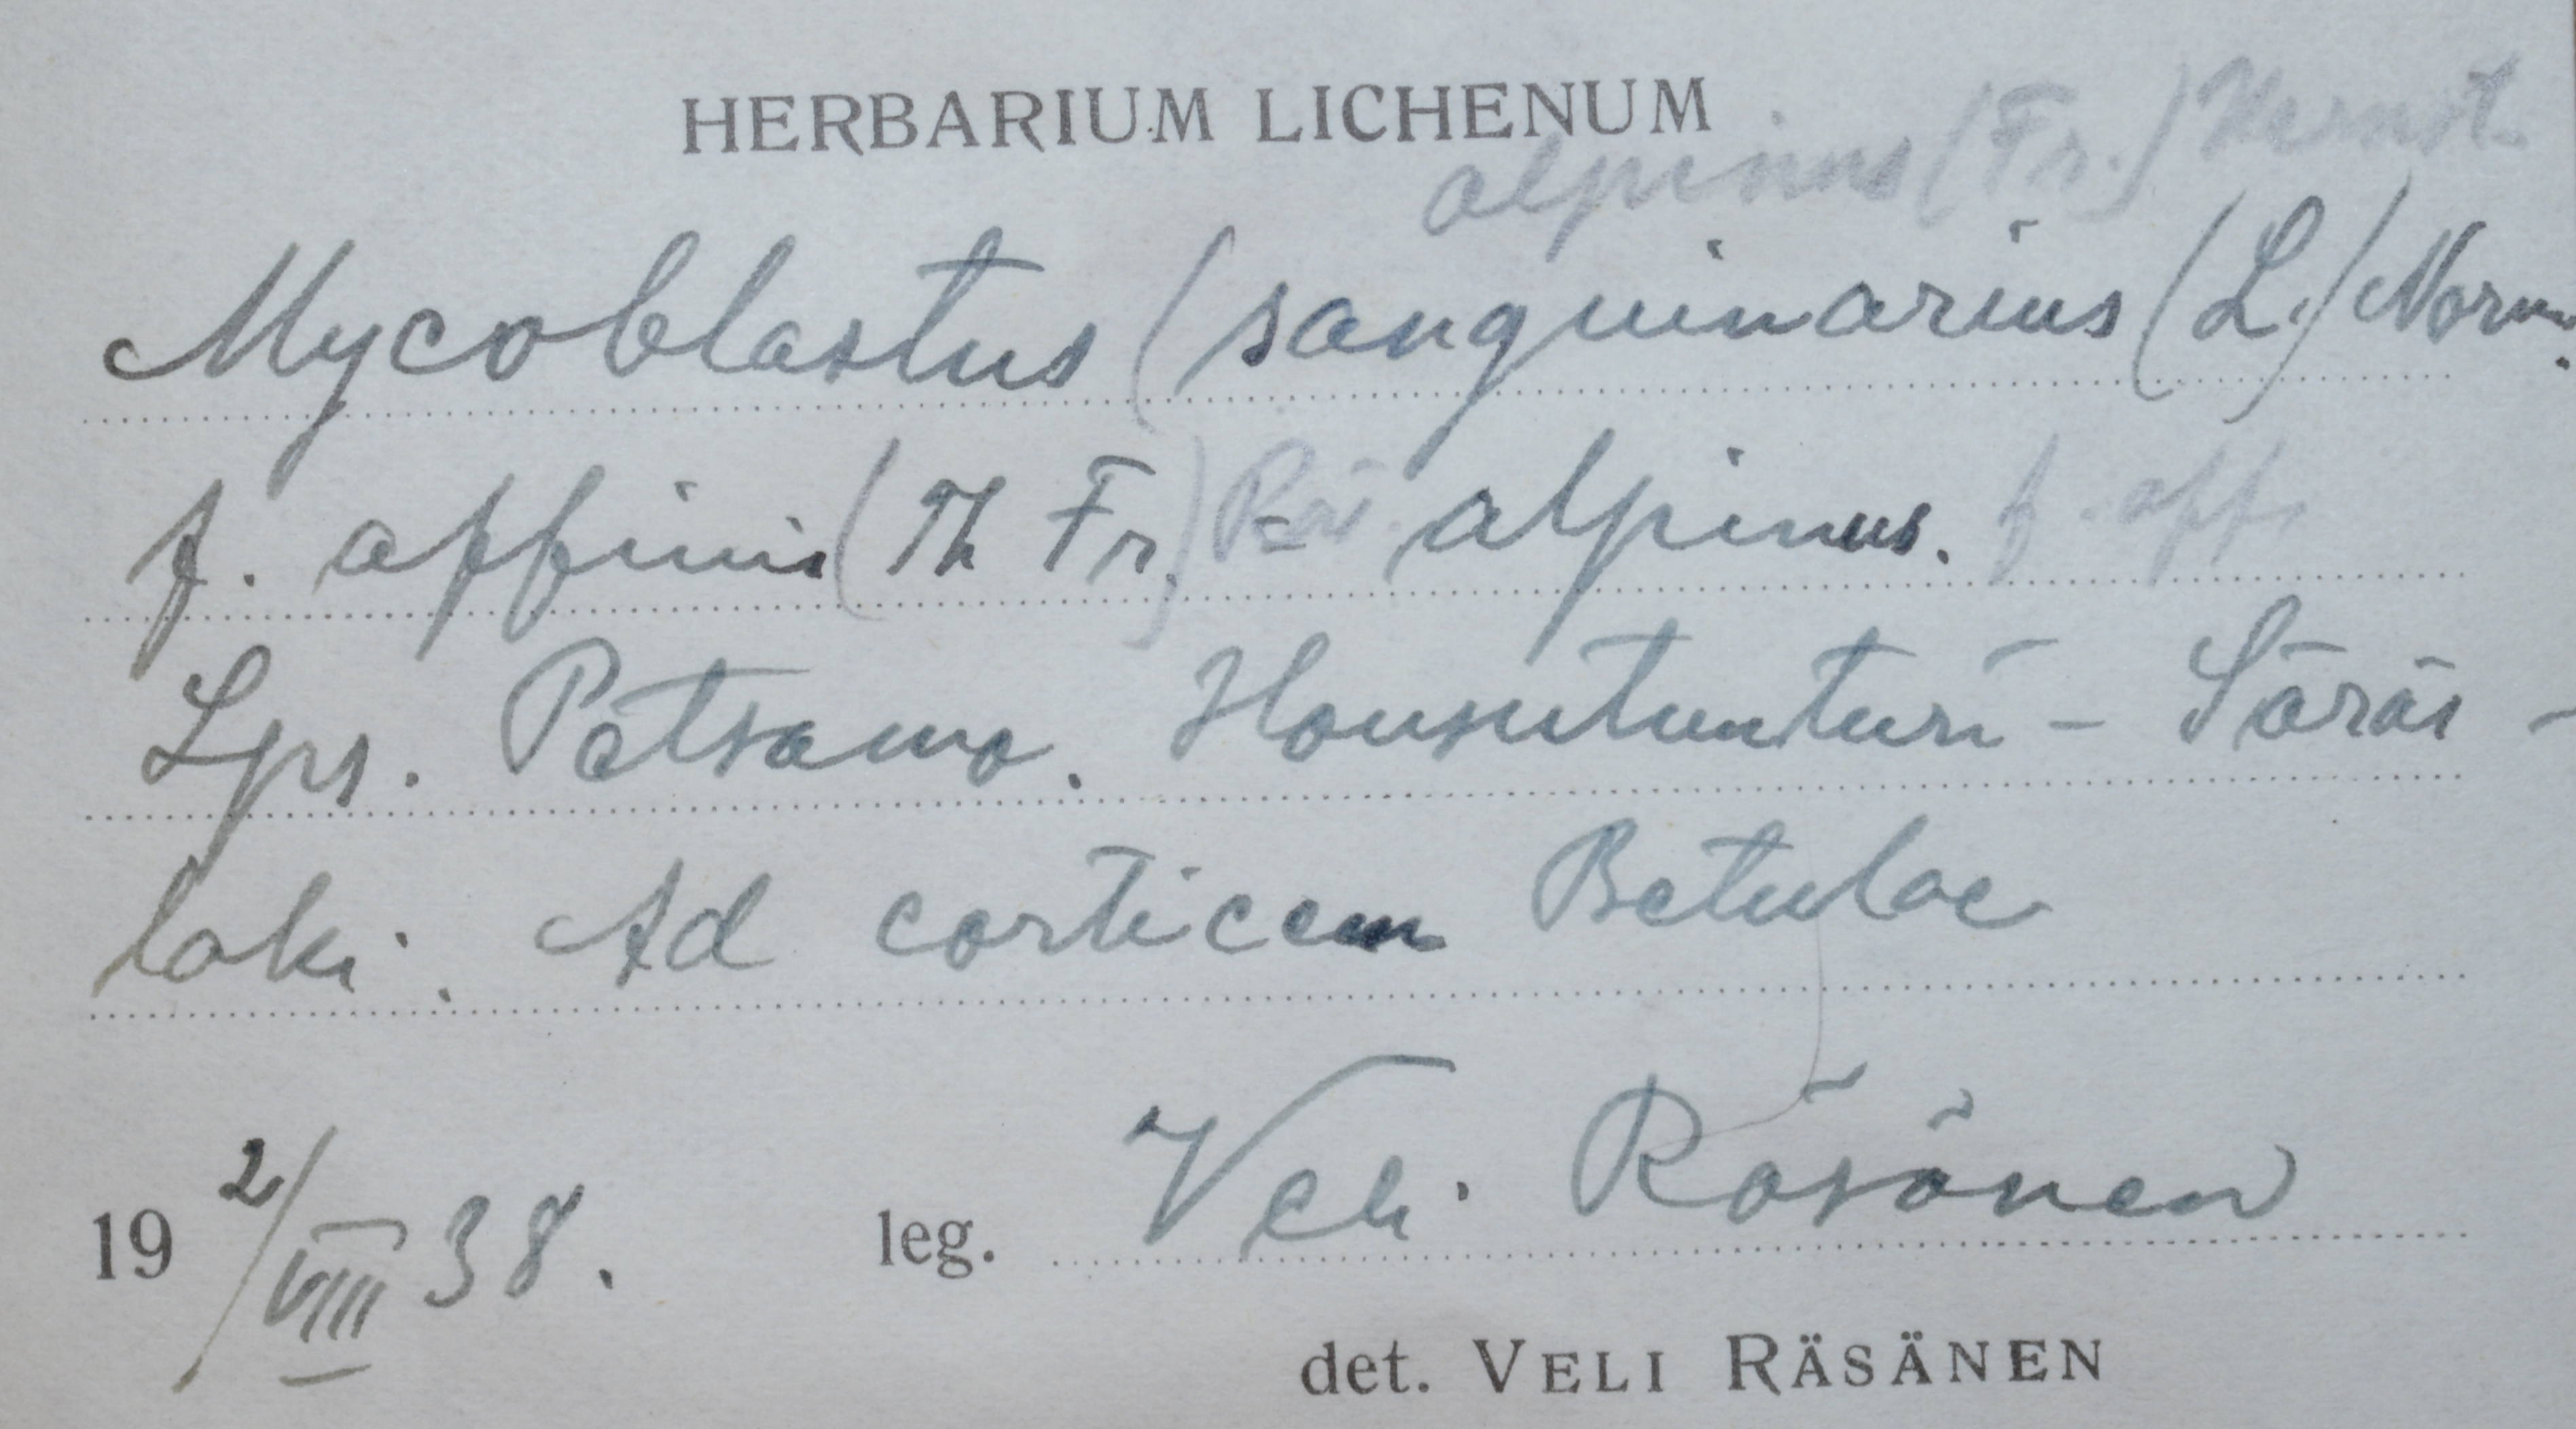 HERBARIUM LICHENUM
alpinus (Fr.) Kernst.
Mycoblastus (sanguinarius (L.) Norm.
f. affinis (Th Fr.) Räs. = alpinus. f. aff.
Lps. Petsamo. Housutunturi - Säräs-
laki. Ad corticem Betulae
19 2/VIII 38. leg. Veli Räsänen
det. VELI RÄSÄNEN